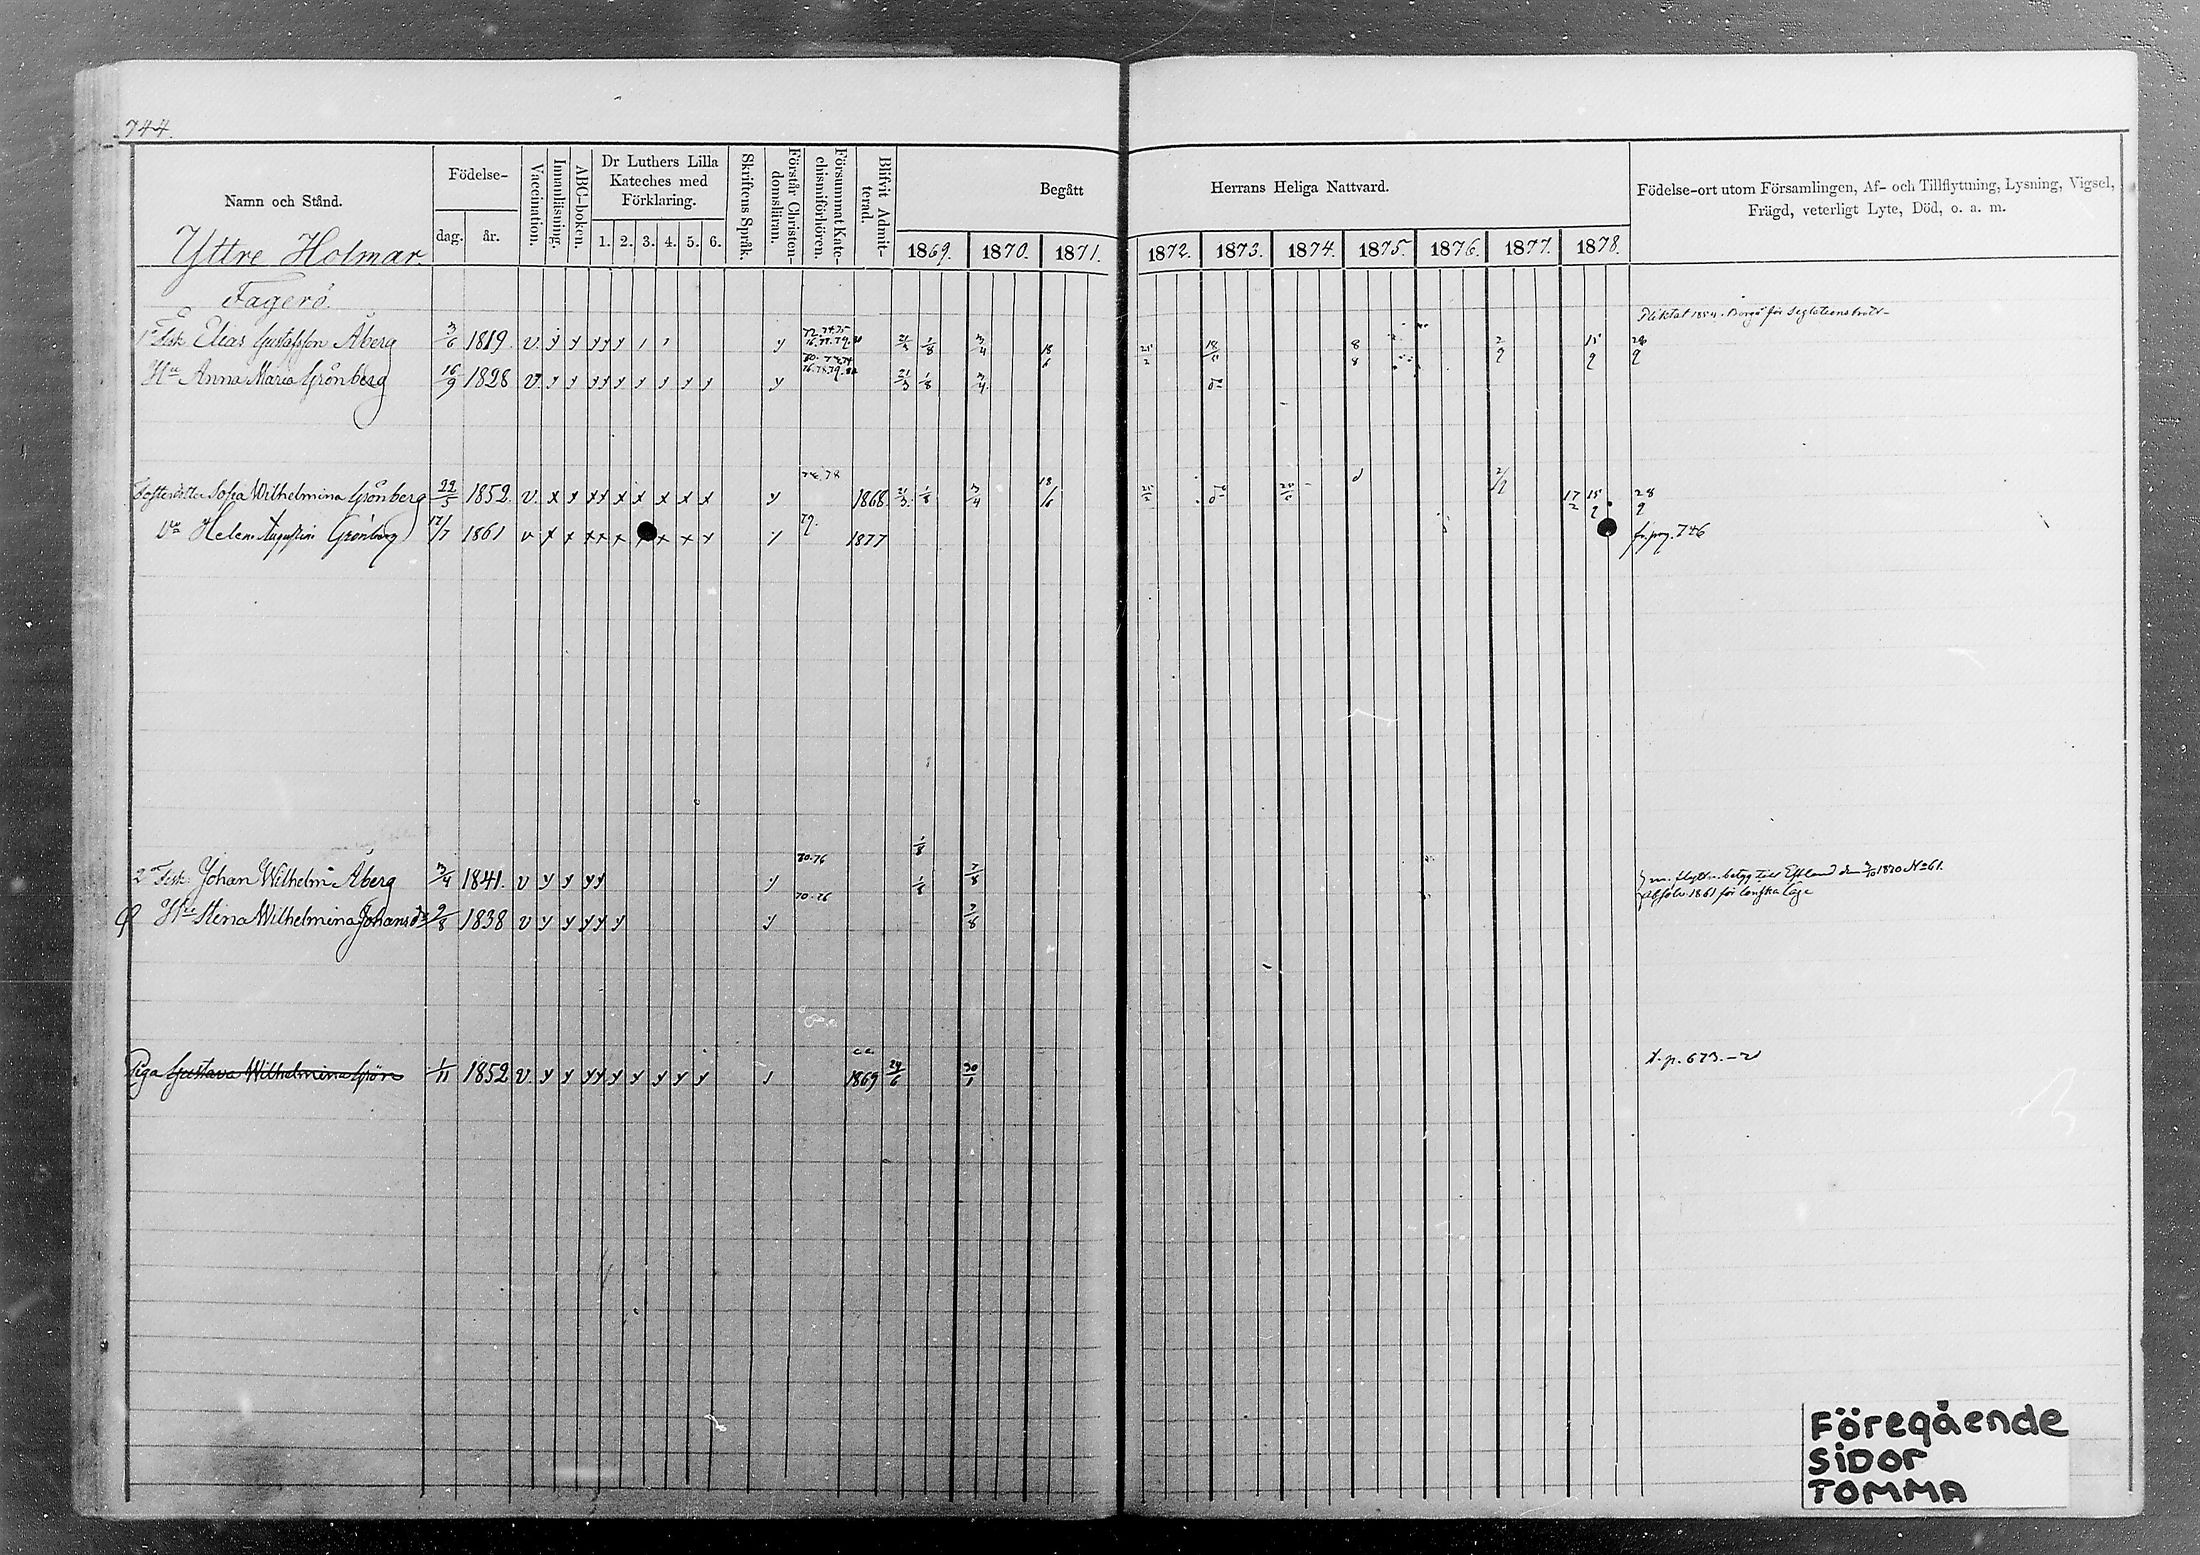 744.
Namn och Stånd.
Födelse-
dag. år.
Vaccination.
Innanläsning.
ABC-boken.
Dr Luthers Lilla
Kateches med
Förklaring.
1. 2. 3. 4. 5. 6.
Skriftens Språk.
Förstår Christen-
domsläran.
Försummat Kate-
chismiförhören.
Blifvit Admit-
terad.
Begått Herrans Heliga Nattvard.
1869. 1870. 1871. 1872. 1873. 1874. 1875. 1876. 1877. 1878.
Födelse-ort utom Församlingen, Af- och Tillflyttning, Lysning, Vigsel,
Frägd, veterligt Lyte, Död, o. a. m.
Yttre Holmar.
Fagerö.
Fisk. Elias Gustafsson Åberg 3/6 1819. v. y y y y y 21/3 1/8 3/4 18/6 25/2 18/5
Hu Anna Maria Grönberg 16/9 1828 v. y y y y y y y y y y 21/3 1/8 3/4
Sofia Wilhelmina Grönberg 22/5 1852. v. x x x x x x x x x y 1868 1/8 3/4 18/6 25/2 17/2 15/9 28/9
Grönberg 17/7 1861 v x x x x x x x x 79. 1877 fr. pag. 746
2 Fisk. Johan Wilhelm Åberg 3/4 1841. v y y y y y 70.76 1/8 7/8
Hu Stina Wilhelmina 9/8 1838 v y y y y y y 7/8
Piga Gustava Wilhelmina Grön 1/11 1852 v. y y y y y y y y y y 1869 24/6 30/1 t. p. 673.
Föregående
sidor
tomma